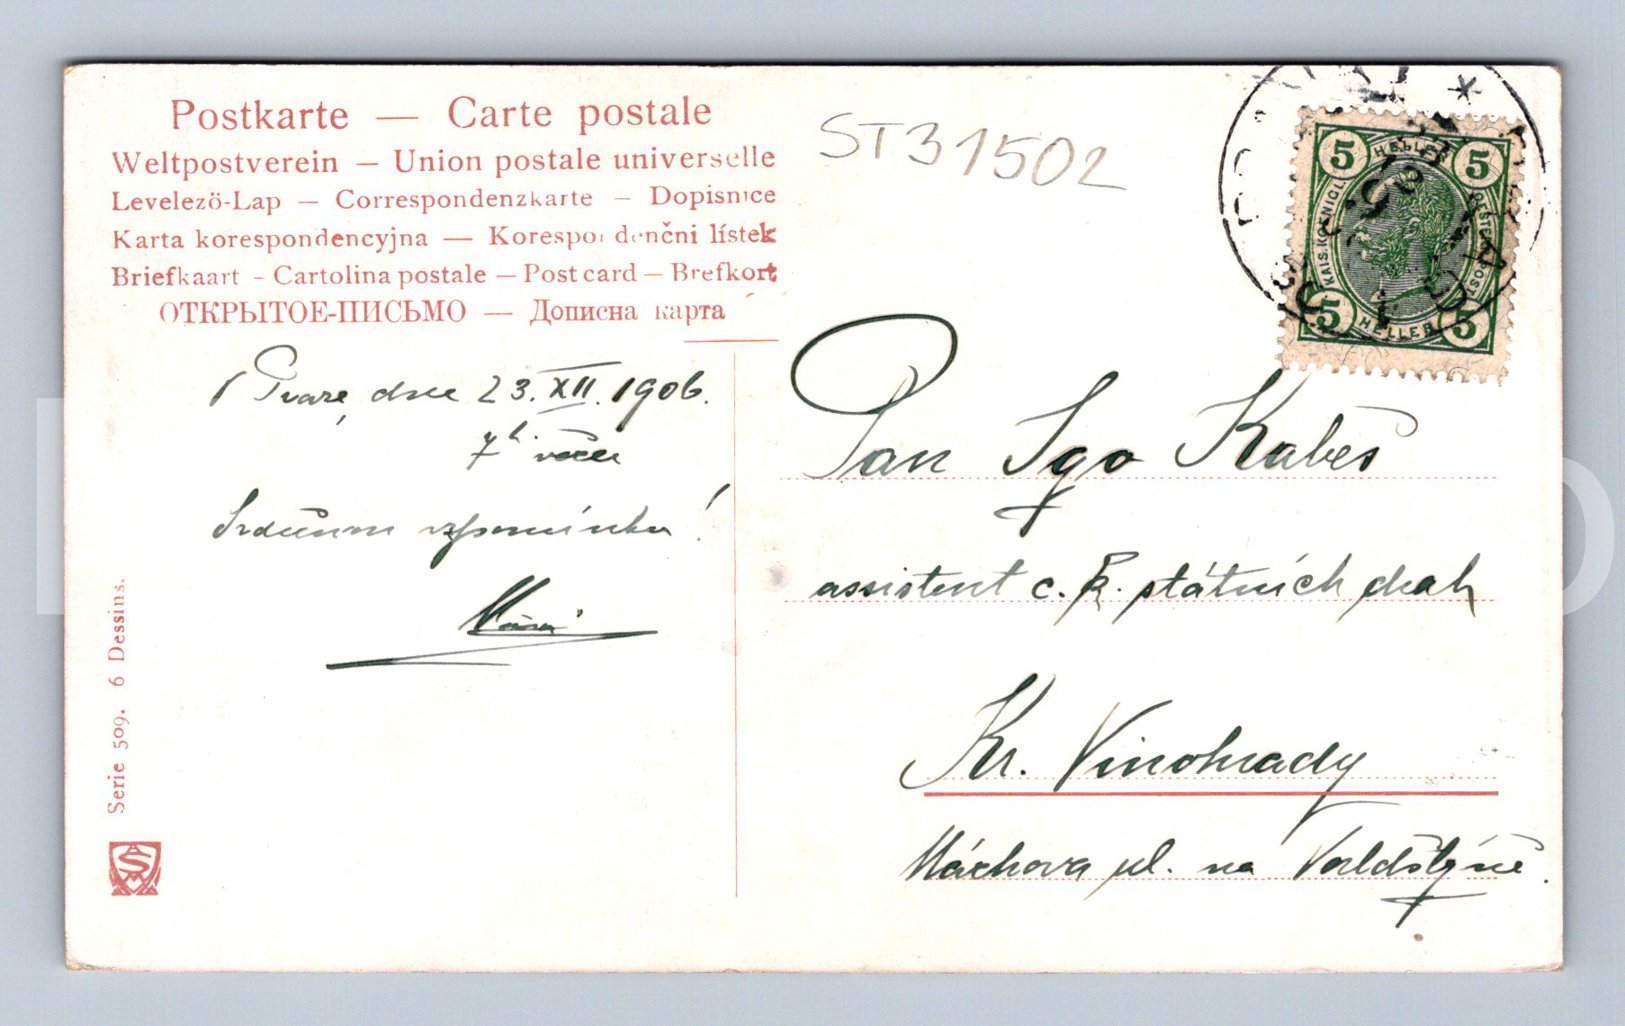 Postkarte — Carte postale
Weltpostverein — Union postale universelle
Levelezö-Lap — Correspondenzkarte — Dopisnice
Karta korespondencyjna — Korespondenčni lístek
Briefkaart - Cartolina postale — Post card — Brefkort
ОТКРЫТОЕ-ПИСЬМО — Дописна карта
ST31502
5 HELLER 5
KAIS. KÖNIGL.
5 HELLER 5
V Praze, dne 23. XII. 1906.
7h. večer
Srdečnou vzpomínku!
Pan Igo Kabeš
assistent c. k. státních drah
Kr. Vinohrady
Máchova ul. na Valdštýně.
Serie 509. 6 Dessins.